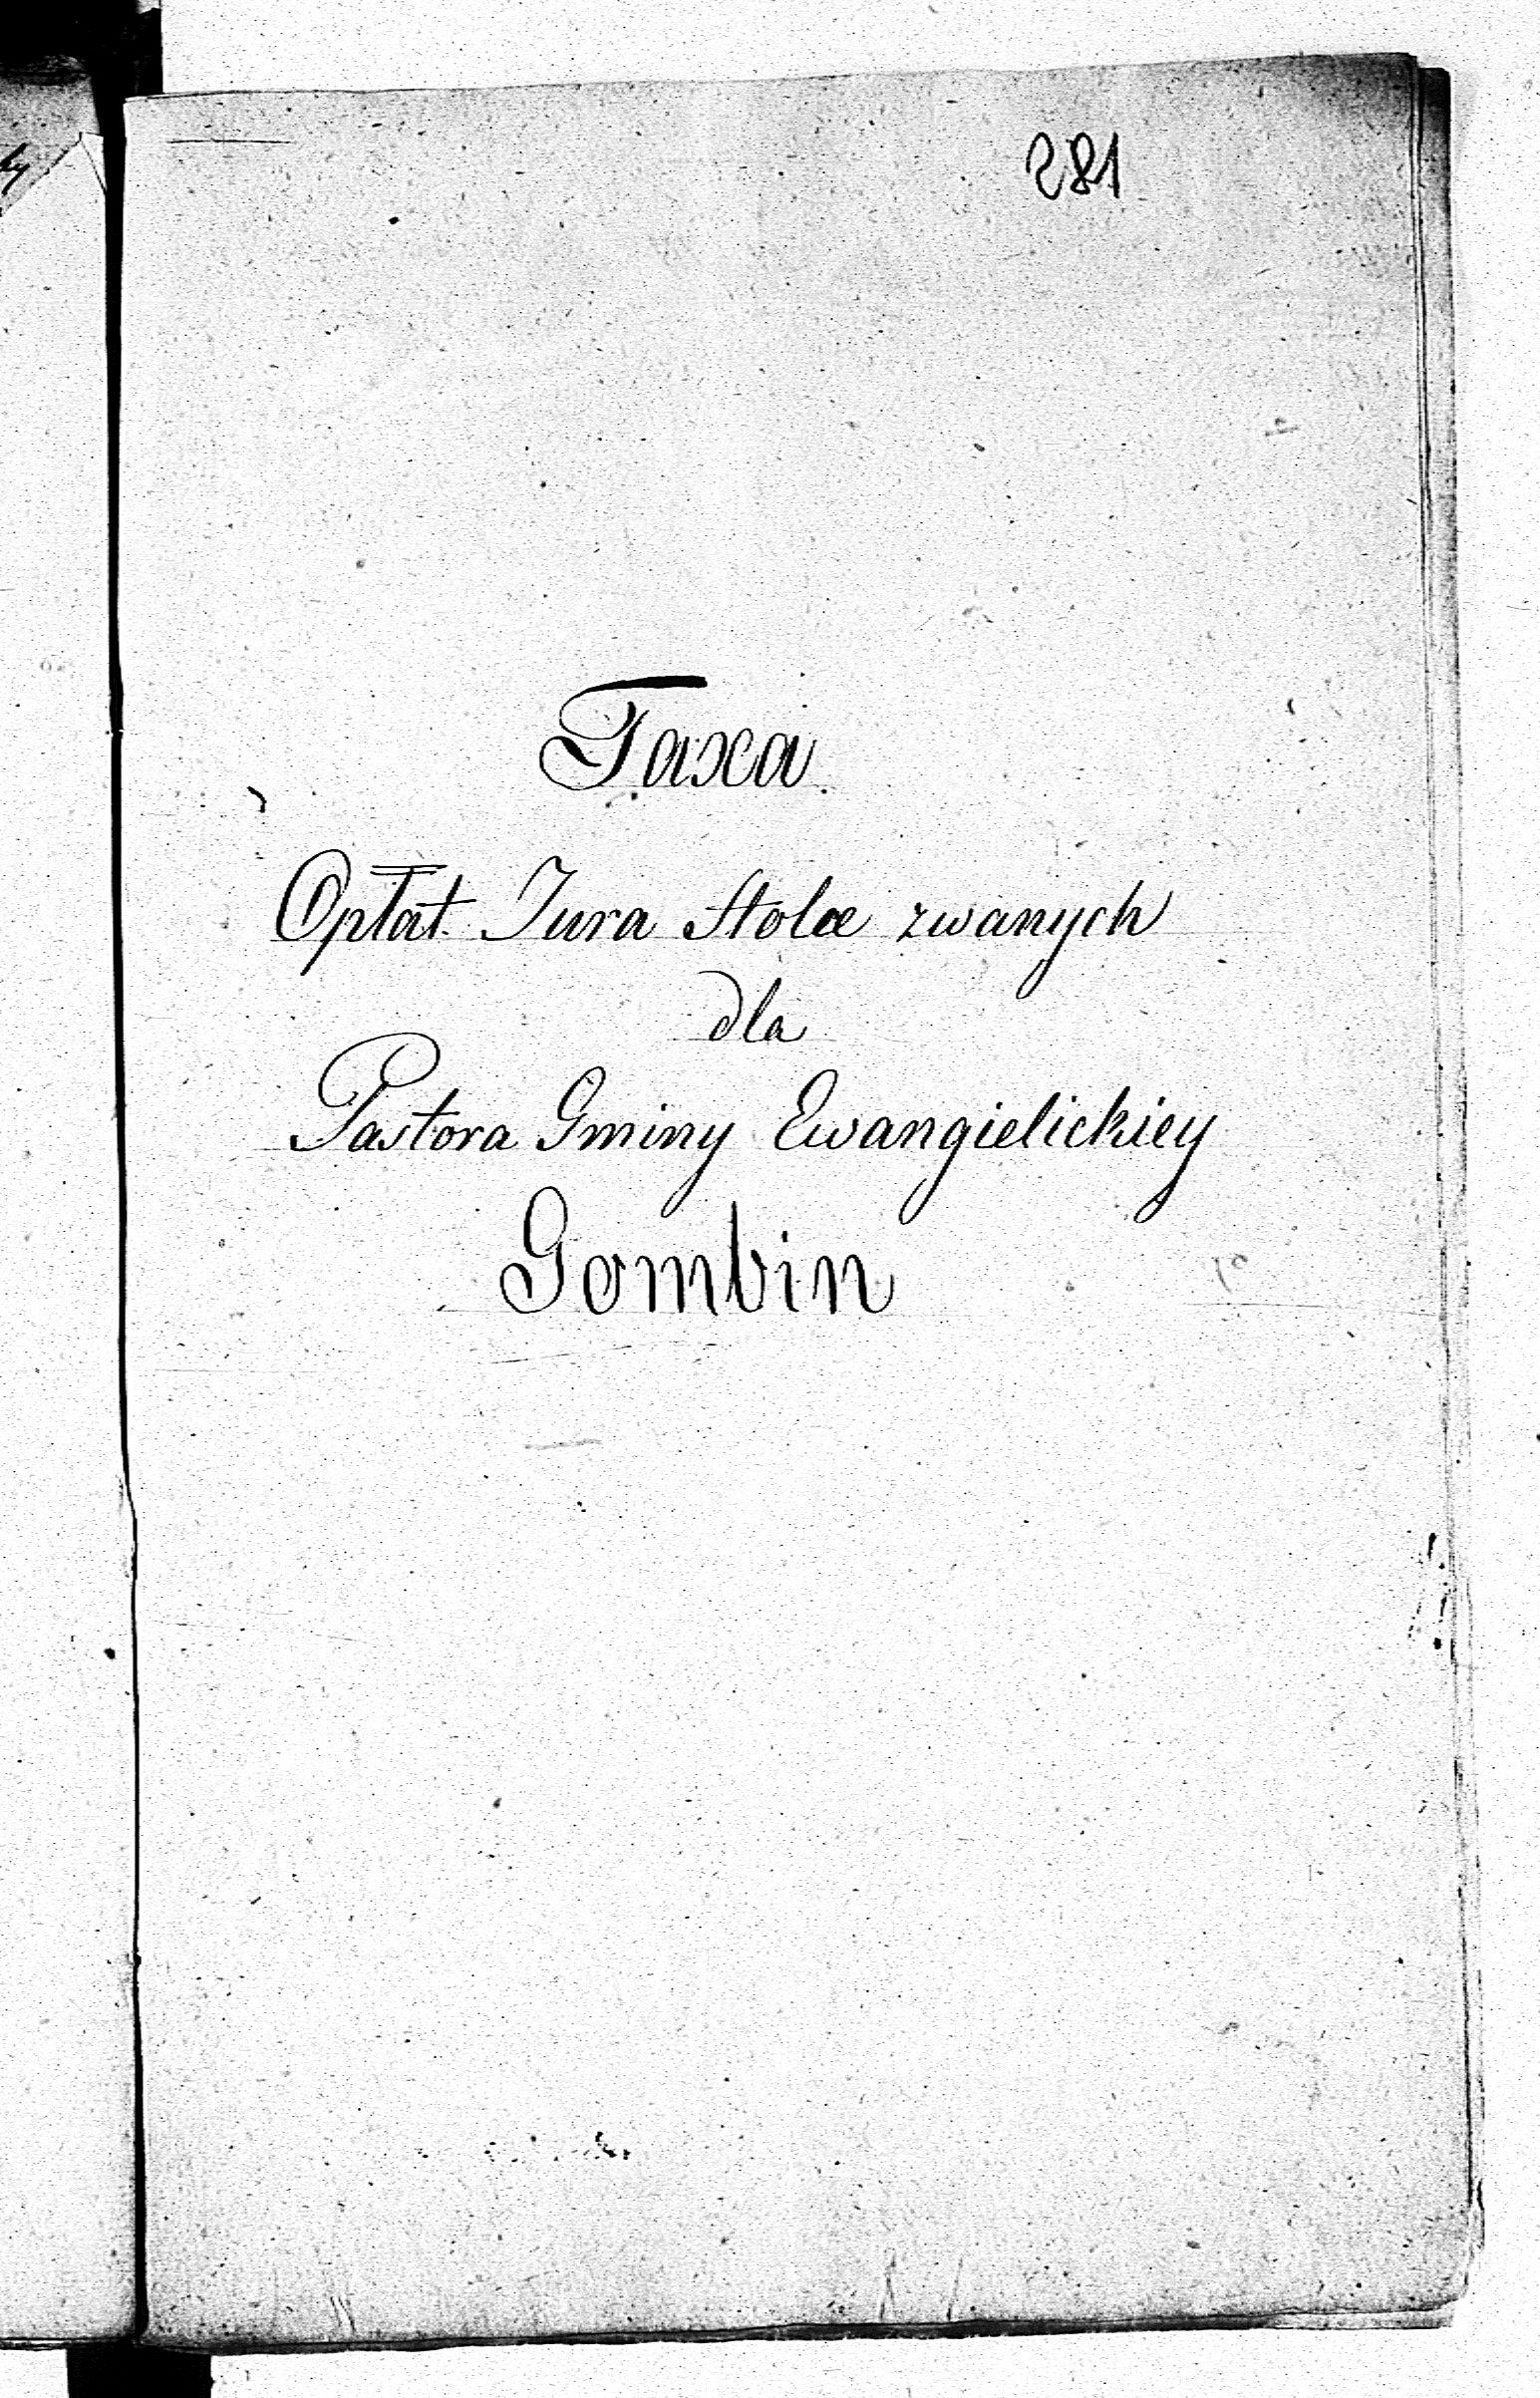 281
Taxa
Opłat Jura Stolæ zwanych
dla
Pastora Gminy Ewangielickiey
Gombin